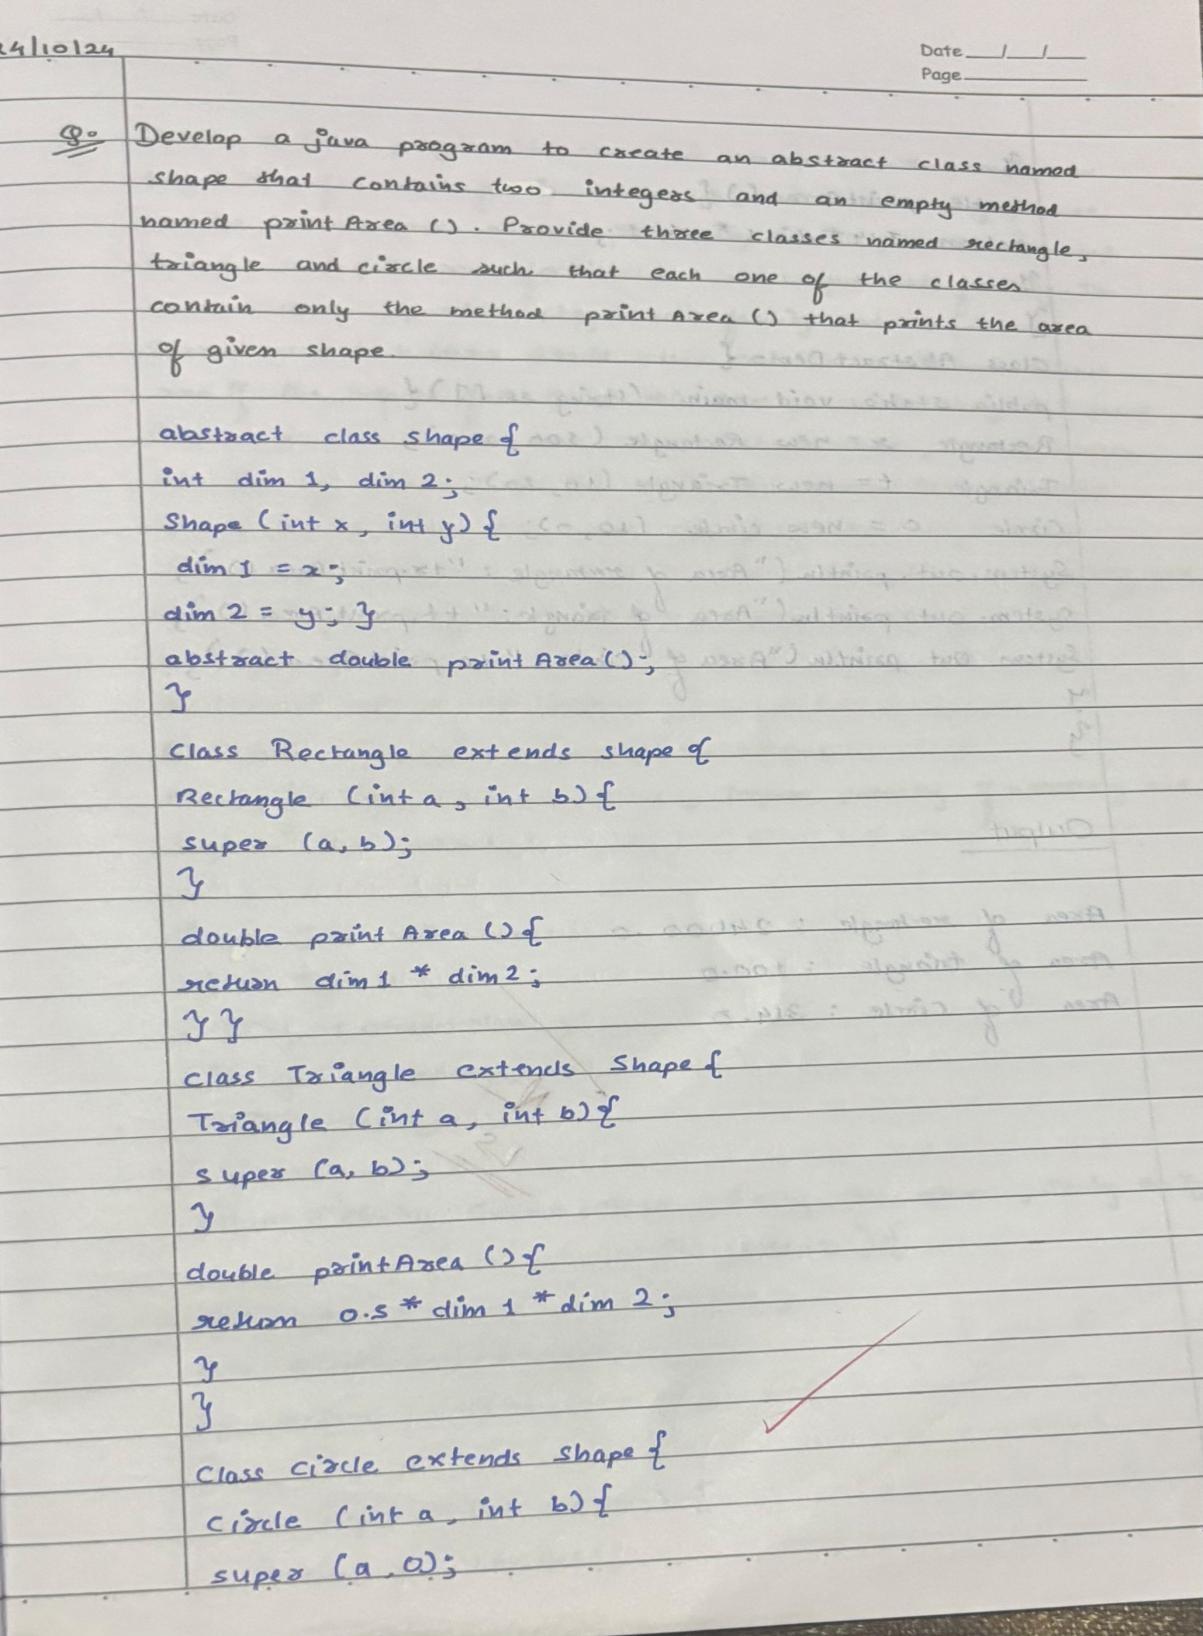 24/10/24
Date __/__/__
Page ______
Q. Develop a java program to create an abstract class named
shape that contains two integers and an empty method
named print Area (). Provide three classes named rectangle,
triangle and circle such that each one of the classes
contain only the method print Area () that prints the area
of given shape.
abstract class shape {
int dim 1, dim 2;
Shape (int x, int y) {
dim 1 = x;
dim 2 = y; }
abstract double print Area ();
}
class Rectangle extends shape {
Rectangle (int a, int b) {
super (a, b);
}
double print Area () {
return dim 1 * dim 2;
} }
class Triangle extends Shape {
Triangle (int a, int b) {
super (a, b);
}
double print Area () {
return 0.5 * dim 1 * dim 2;
}
}
class circle extends shape {
circle (int a, int b) {
super (a, 0);